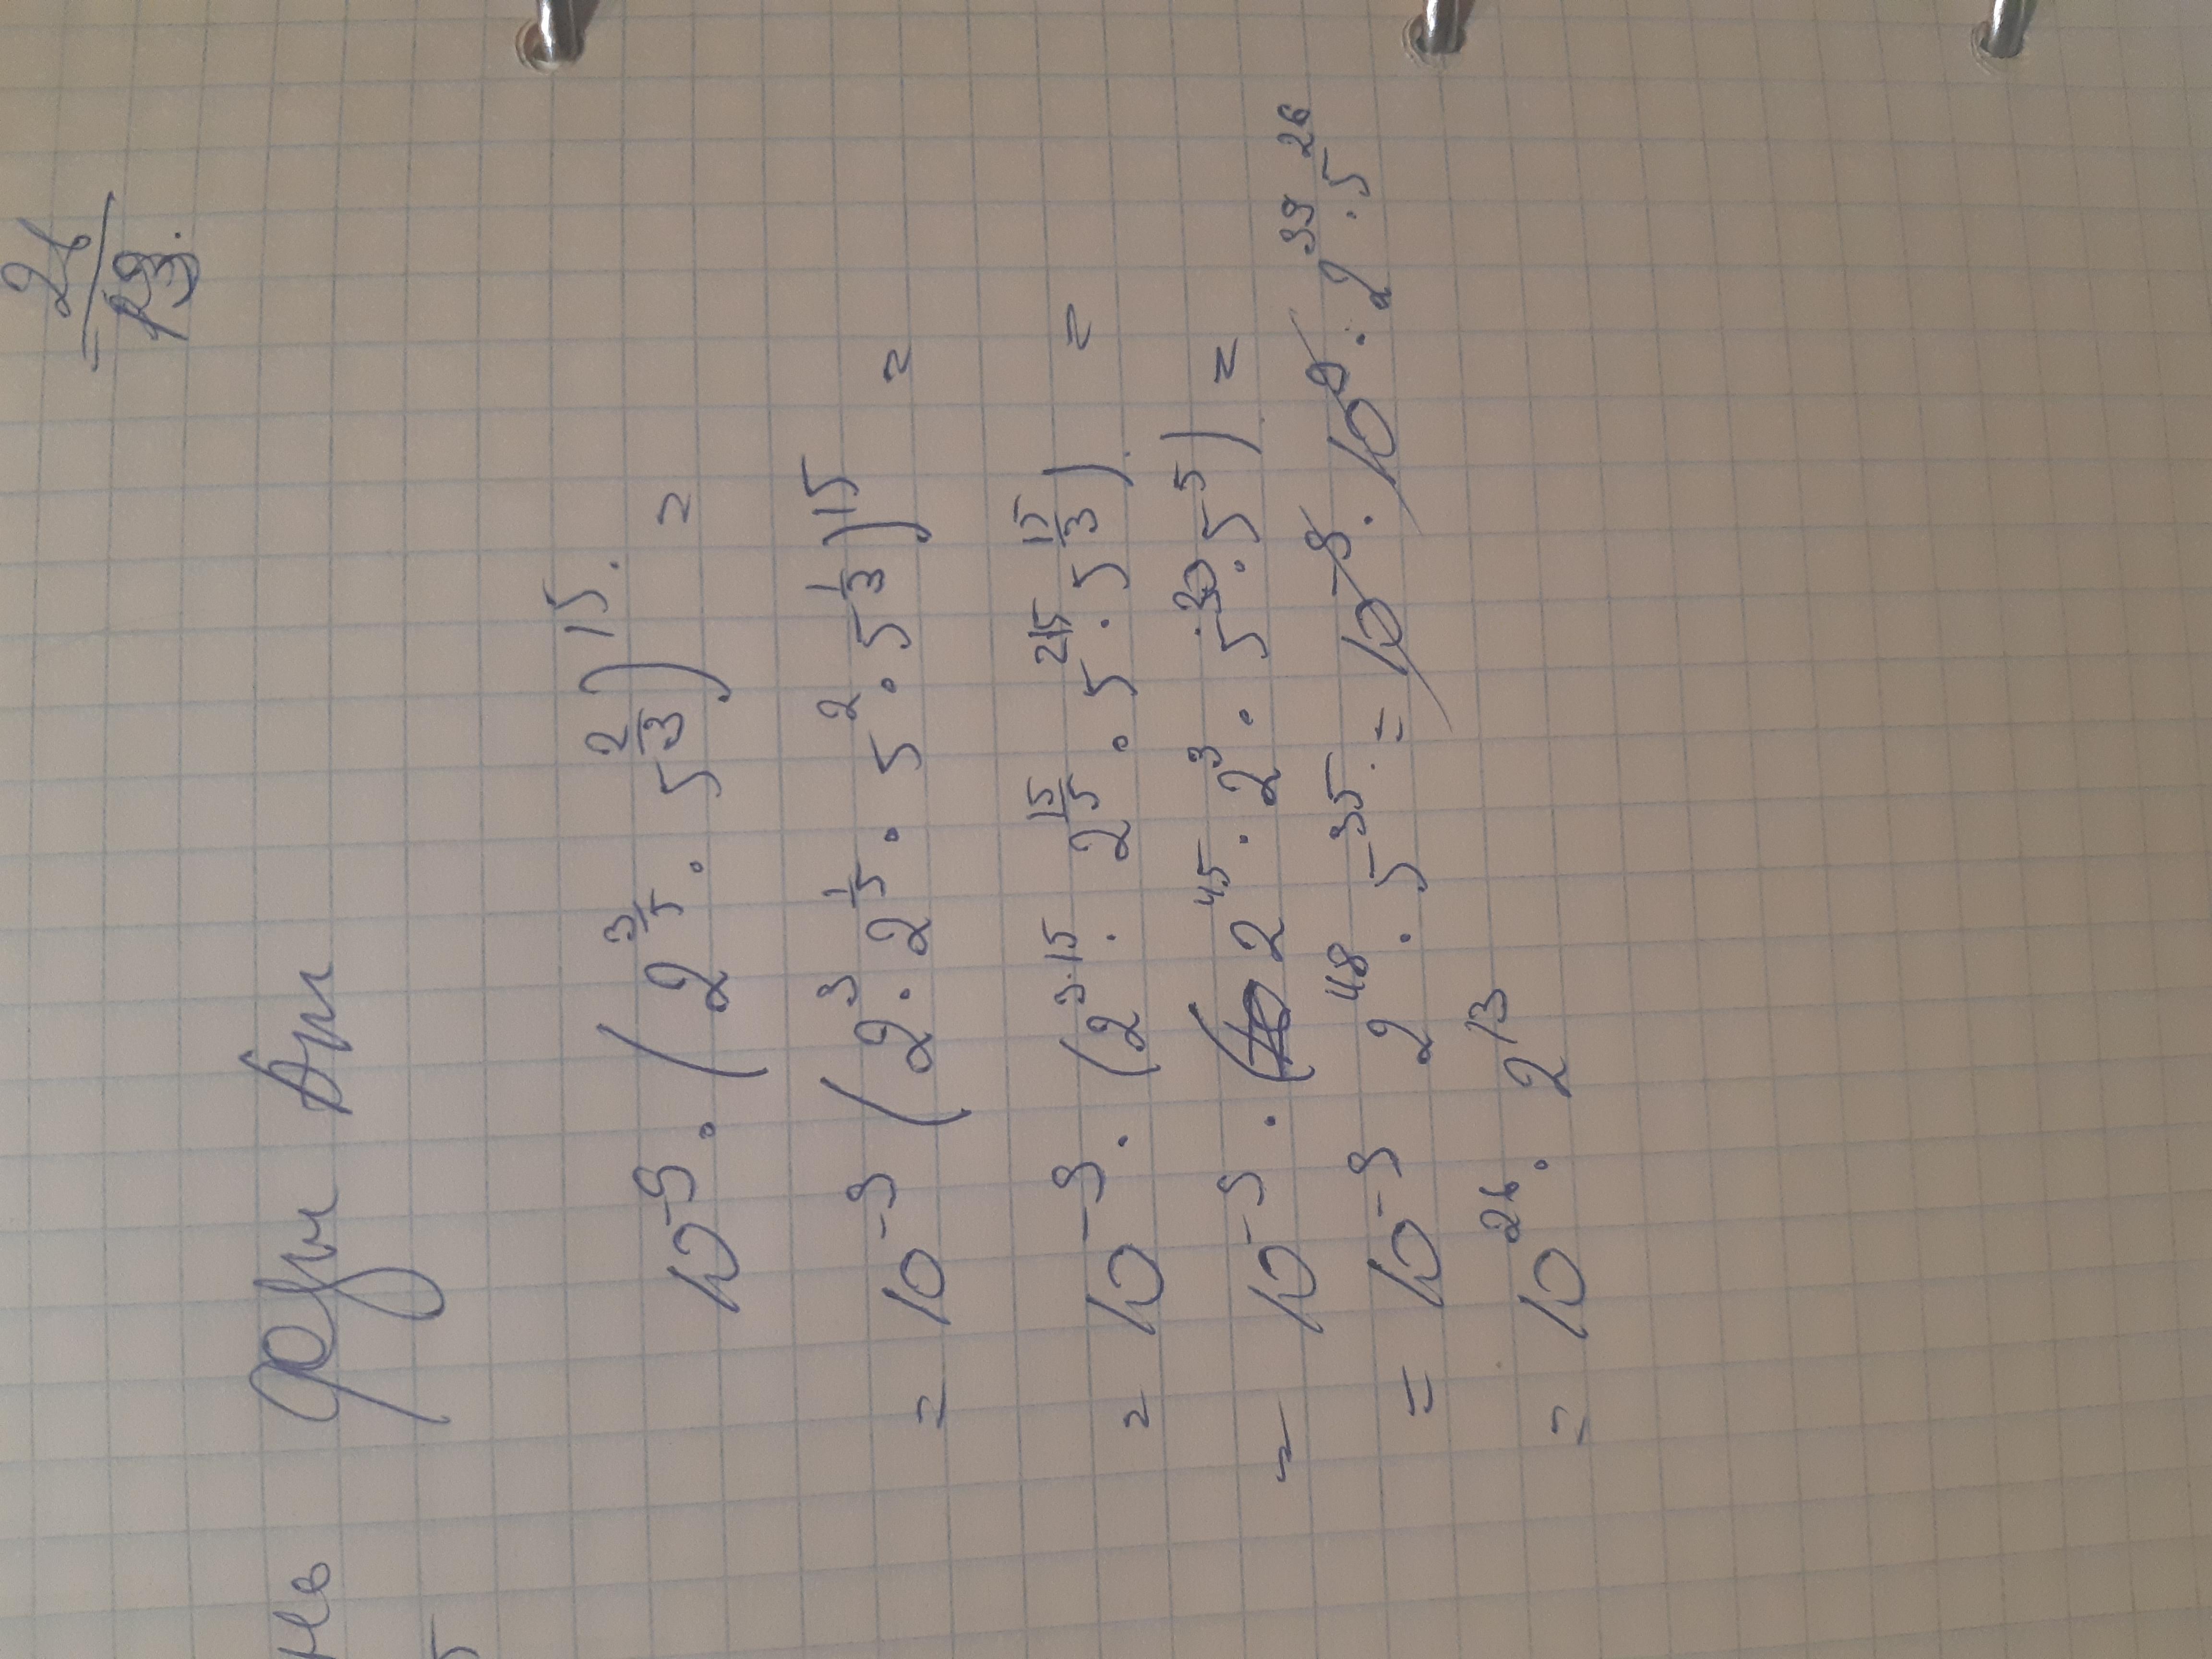 26
- 13.
10^{-9} · (2^{\frac{3}{5}} · 5^{\frac{2}{3}})^{15}. =
= 10^{-9} (2^{3} · 2^{\frac{1}{5}} · 5^{2} · 5^{\frac{1}{3}})^{15} =
= 10^{-9} · (2^{3·15} · 2^{\frac{15}{5}} · 5^{215} · 5^{\frac{15}{3}}) =
= 10^{-9} · (2^{45} · 2^{3} · 5^{30} · 5^{5}) =
= 10^{-9} 2^{48} · 5^{35} · = 10^{-9} · 10^{9} · 2^{39} · 5^{26}
= 10^{26} · 2^{13}
5